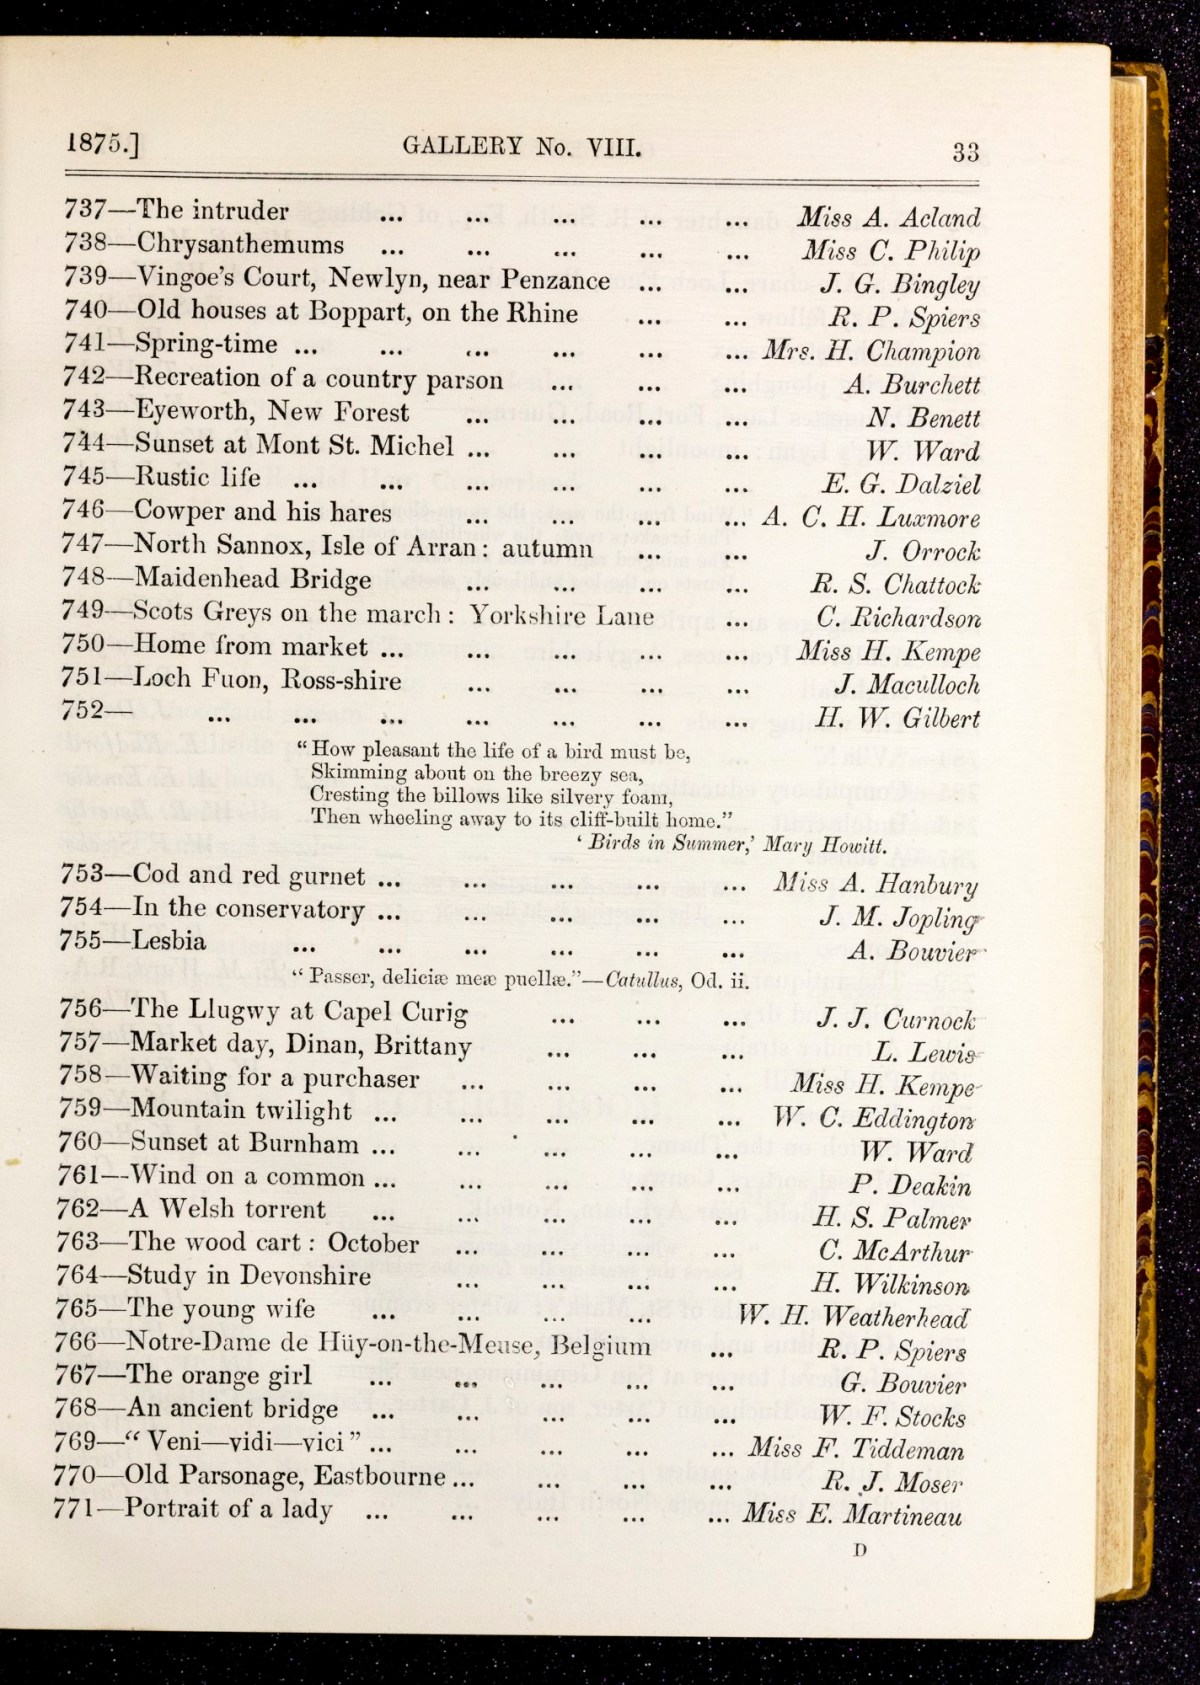 1875.] GALLERY No. VIII. 33
737—The intruder ... ... ... ... ... Miss A. Acland
738—Chrysanthemums ... ... ... ... ... Miss C. Philip
739—Vingoe's Court, Newlyn, near Penzance ... ... J. G. Bingley
740—Old houses at Boppart, on the Rhine ... ... R. P. Spiers
741—Spring-time ... ... ... ... ... ... Mrs. H. Champion
742—Recreation of a country parson ... ... ... A. Burchett
743—Eyeworth, New Forest ... ... ... ... N. Benett
744—Sunset at Mont St. Michel ... ... ... ... W. Ward
745—Rustic life ... ... ... ... ... ... E. G. Dalziel
746—Cowper and his hares ... ... ... ... A. C. H. Luxmore
747—North Sannox, Isle of Arran : autumn ... ... J. Orrock
748—Maidenhead Bridge ... ... ... ... R. S. Chattock
749—Scots Greys on the march : Yorkshire Lane ... C. Richardson
750—Home from market ... ... ... ... ... Miss H. Kempe
751—Loch Fuon, Ross-shire ... ... ... ... J. Maculloch
752— ... ... ... ... ... ... ... H. W. Gilbert
“How pleasant the life of a bird must be,
Skimming about on the breezy sea,
Cresting the billows like silvery foam,
Then wheeling away to its cliff-built home.”
‘Birds in Summer,’ Mary Howitt.
753—Cod and red gurnet ... ... ... ... ... Miss A. Hanbury
754—In the conservatory ... ... ... ... ... J. M. Jopling
755—Lesbia ... ... ... ... ... ... A. Bouvier
“Passer, deliciæ meæ puellæ.”—Catullus, Od. ii.
756—The Llugwy at Capel Curig ... ... ... J. J. Curnock
757—Market day, Dinan, Brittany ... ... ... L. Lewis
758—Waiting for a purchaser ... ... ... ... Miss H. Kempe
759—Mountain twilight ... ... ... ... ... W. C. Eddington
760—Sunset at Burnham ... ... ... ... ... W. Ward
761—Wind on a common ... ... ... ... ... P. Deakin
762—A Welsh torrent ... ... ... ... ... H. S. Palmer
763—The wood cart : October ... ... ... ... C. McArthur
764—Study in Devonshire ... ... ... ... H. Wilkinson
765—The young wife ... ... ... ... W. H. Weatherhead
766—Notre-Dame de Hüy-on-the-Meuse, Belgium ... R. P. Spiers
767—The orange girl ... ... ... ... ... G. Bouvier
768—An ancient bridge ... ... ... ... ... W. F. Stocks
769—“Veni—vidi—vici” ... ... ... ... ... Miss F. Tiddeman
770—Old Parsonage, Eastbourne ... ... ... ... R. J. Moser
771—Portrait of a lady ... ... ... ... ... Miss E. Martineau
D